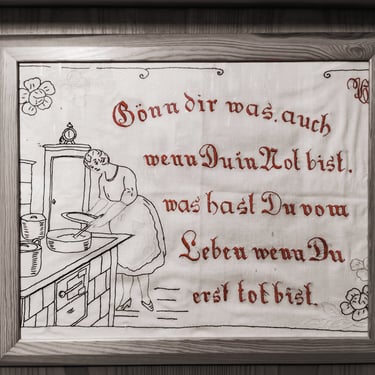 Gönn dir was, auch
wenn Du in Not bist.
was hast Du vom
Leben wenn Du
erst tot bist.